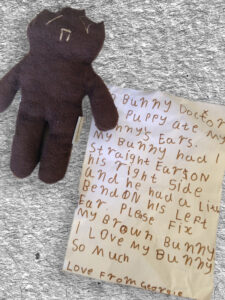 Bunny Doctor
Puppy ate my
Bunny's Ears.
My Bunny had 1
Straight Ear SON
his right side
and he had a Litt
Bend ON his Left
Ear. Please Fix
My Brown Bunny
I Love My Bunny
So Much
Love From Georgie